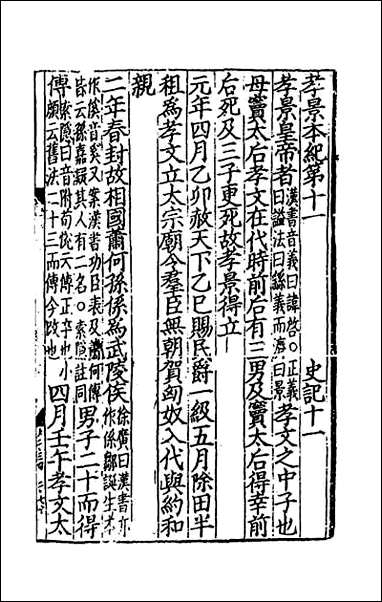 孝景本紀第十一 史記十一
孝景皇帝者漢書音義曰諱啓○正義曰諡法曰繇義而濟曰景孝文之中子也
母竇太后孝文在代時前后有三男及竇太后得幸前
后死及三子更死故孝景得立
元年四月乙卯赦天下乙巳賜民爵一級五月除田半
租爲孝文立太宗廟令羣臣無朝賀匈奴入代與約和
親
二年春封故相國蕭何孫係爲武陵侯徐廣曰漢書亦作係鄒誕生本作傒音奚又案漢書功臣表及蕭何傳皆云孫嘉疑其人有二名○索隱註同男子二十而得
傅索隱曰音附荀悅云傅正卒也小顏云舊法二十三而傅今改也四月壬午孝文太